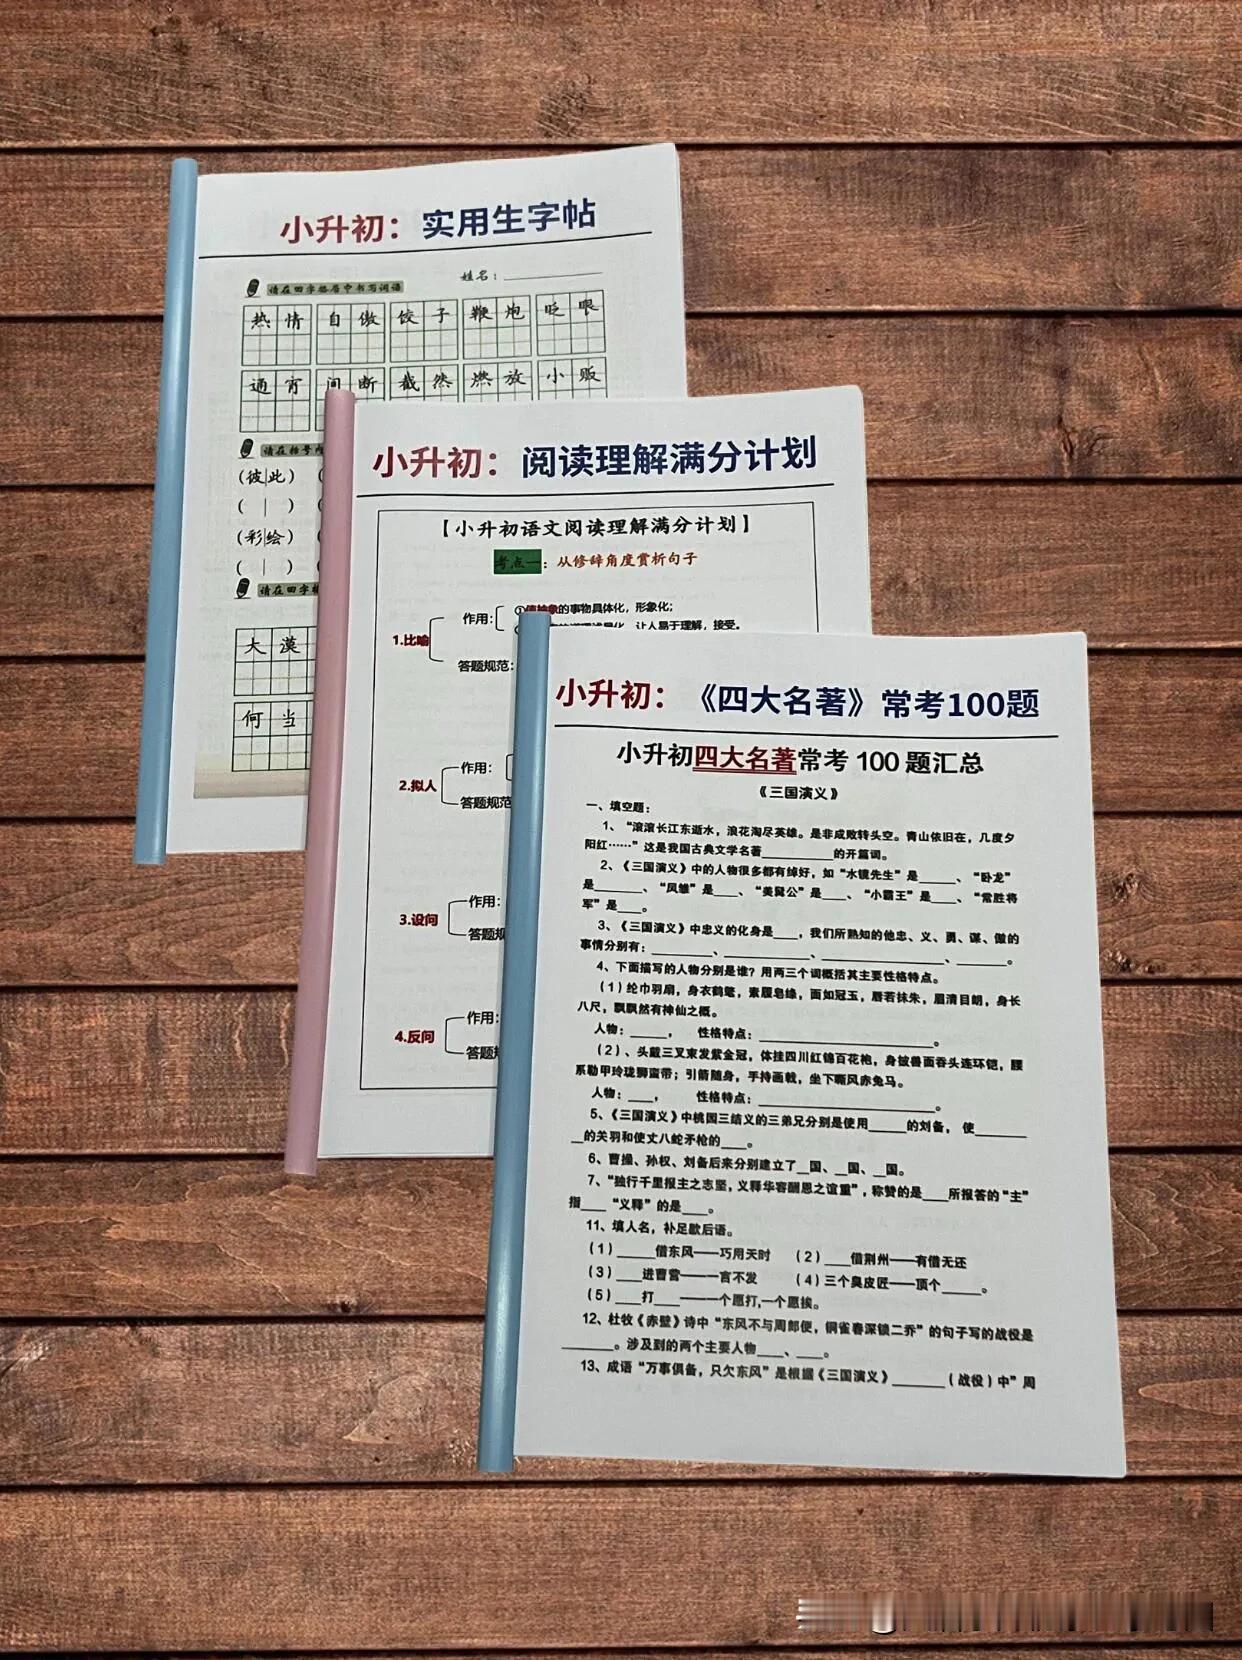 小升初：实用生字帖
姓名：
请在田字格居中书写词语
热情 自傲 饺子 鞭炮 眨眼
通宵 间断 截然 燃放 小贩
请在括号内
(彼|此)
( | )
(彩|绘)
( | )
请在田字格
大漠
何当
小升初：阅读理解满分计划
【小升初语文阅读理解满分计划】
考点一：从修辞角度赏析句子
1.比喻
作用：
①使抽象的事物具体化，形象化；
让人易于理解，接受。
答题规范：
2.拟人
作用：
答题规范
3.设问
作用：
答题规
4.反问
作用：
答题
小升初：《四大名著》常考100题
小升初四大名著常考 100 题汇总
《三国演义》
一、填空题：
1、“滚滚长江东逝水，浪花淘尽英雄。是非成败转头空。青山依旧在，几度夕
阳红……”这是我国古典文学名著__________的开篇词。
2、《三国演义》中的人物很多都有绰好，如“水镜先生”是_____、“卧龙”
是_______、“凤雏”是___、“美髯公”是___、“小霸王”是____、“常胜将
军”是___。
3、《三国演义》中忠义的化身是___，我们所熟知的他忠、义、勇、谋、傲的
事情分别有：________、_________、________________、_____。
4、下面描写的人物分别是谁？用两三个词概括其主要性格特点。
（1）纶巾羽扇，身衣鹤氅，素履皂绦，面如冠玉，唇若抹朱，眉清目朗，身长
八尺，飘飘然有神仙之概。
人物：_____， 性格特点：______________________。
（2）、头戴三叉束发紫金冠，体挂四川红锦百花袍，身披兽面吞头连环铠，腰
系勒甲玲珑狮蛮带；引箭随身，手持画戟，坐下嘶风赤兔马。
人物：___， 性格特点：______________________。
5、《三国演义》中桃园三结义的三弟兄分别是使用_____的刘备， 使_______
_的关羽和使丈八蛇矛枪的___。
6、曹操、孙权、刘备后来分别建立了__国、__国、__国。
7、“独行千里报主之志坚，义释华容酬恩之谊重”，称赞的是___所报答的“主”
指___ “义释”的是___。
11、填人名，补足歇后语。
（1）_____借东风——巧用天时 （2）___借荆州——有借无还
（3）___进曹营——一言不发 （4）三个臭皮匠——顶个_____。
（5）___打___——一个愿打,一个愿挨。
12、杜牧《赤壁》诗中“东风不与周郎便，铜雀春深锁二乔”的句子写的战役是
_______。涉及到的两个主要人物___、___。
13、成语“万事俱备，只欠东风”是根据《三国演义》_______（战役）中”周